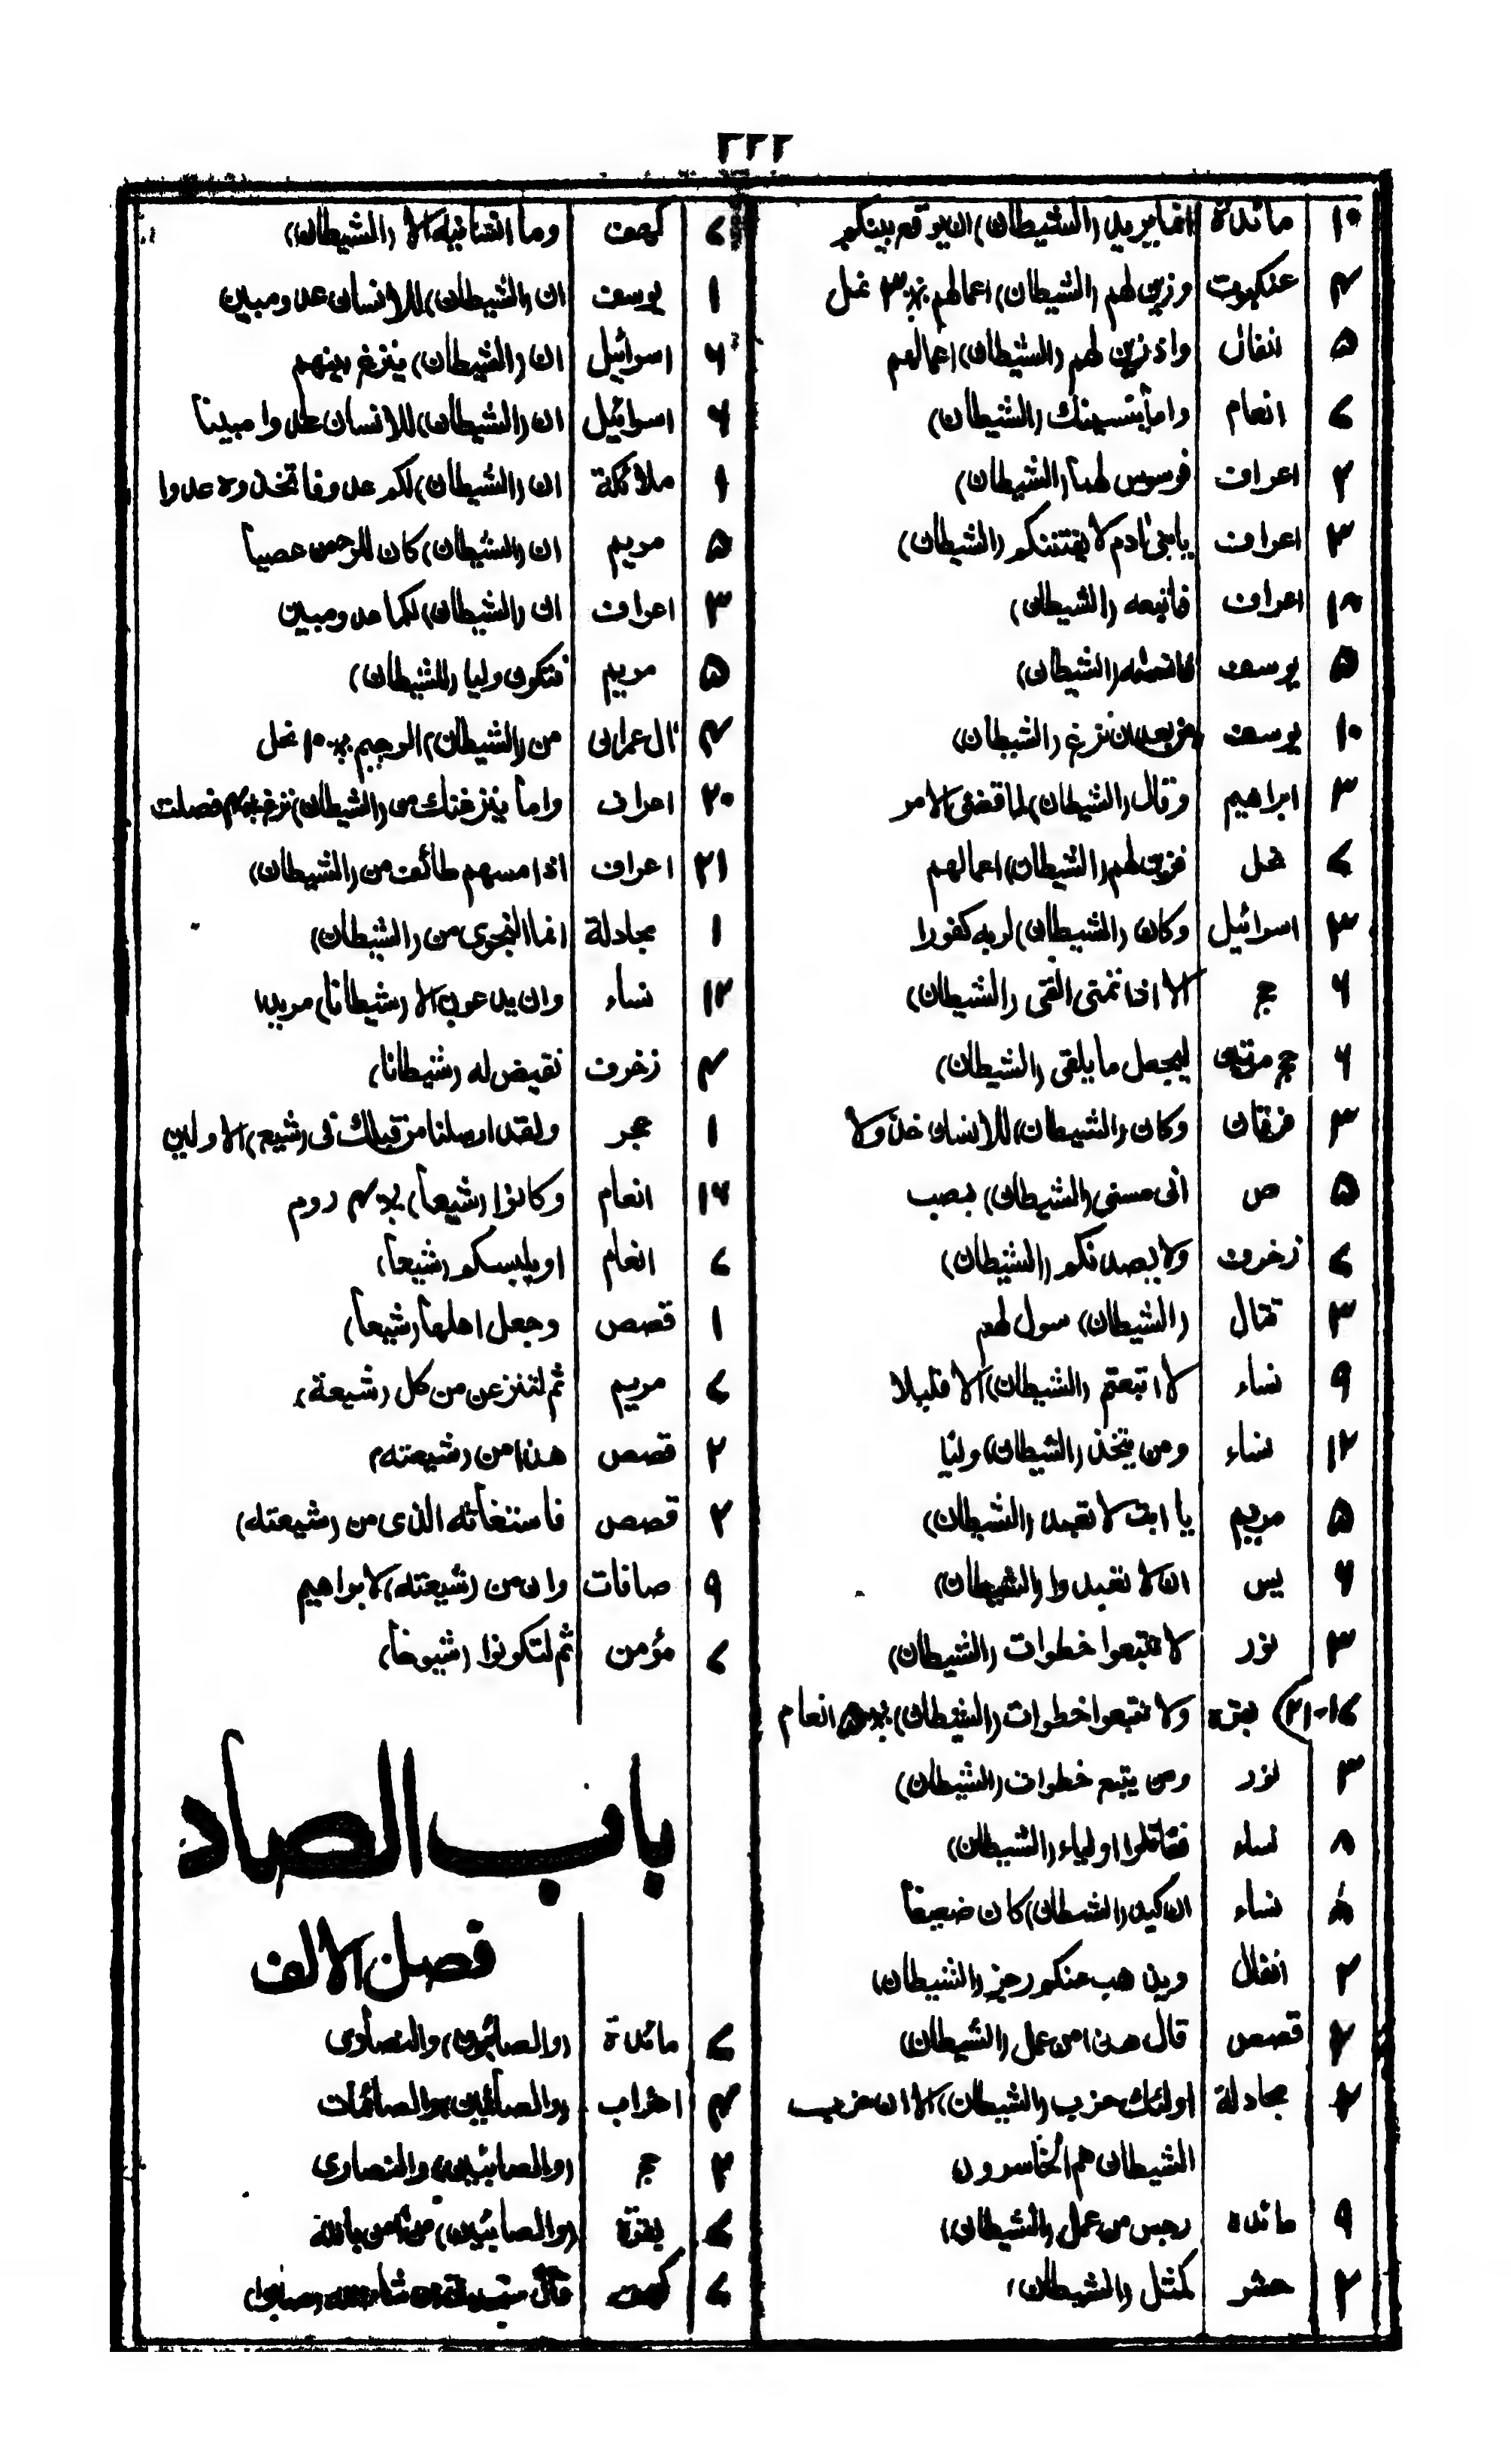 ٢٢٢
١٠ مائدة انما يريد (الشيطان) ان يوقع بينكم
٤ عنكبوت وزين لهم (الشيطان) اعمالهم ٣ نمل
٥ انفال واذ زين لهم (الشيطان) اعمالهم
٧ انعام واما ينسينك (الشيطان)
٢ اعراف فوسوس لهما (الشيطان)
٣ اعراف يا بنى ئادم لا يفتننكم (الشيطان)
اعراف فاتبعه (الشيطان)
٥ يوسف فانسٰه (الشيطان)
١٠ يوسف من بعد ان نزغ (الشيطان)
٣ ابراهيم وقال (الشيطان) لما قضى الامر
٧ نحل فزين لهم (الشيطان) اعمالهم
٣ اسرائيل وكان (الشيطان) لربه كفورا
٦ حج الا اذا تمنى القى (الشيطان)
٦ حج ليجعل ما يلقى (الشيطان)
٣ فرقان وكان (الشيطان) للانسان خذولا
٥ ص انى مسنى (الشيطان) بنصب
٧ زخرف ولا يصدنكم (الشيطان)
٣ قتال (الشيطان) سول لهم
٩ نساء لا اتبعتم (الشيطان) الا قليلا
١٢ نساء ومن يتخذ (الشيطان) وليا
٥ مريم يا ابت لا تعبد (الشيطان)
٦ يس ان لا تعبدوا (الشيطان)
٣ نور لا تتبعوا خطوات (الشيطان)
بقرة ولا تتبعوا خطوات (الشيطان) انعام
٣ نور ومن يتبع خطوات (الشيطان)
٨ نساء فقاتلوا اولياء (الشيطان)
نساء ان كيد (الشيطان) كان ضعيفا
٢ انفال ويذهب عنكم رجز (الشيطان)
٢ قصص قال هذا من عمل (الشيطان)
مجادلة اولئك حزب (الشيطان) الا ان حزب
الشيطان هم الخاسرون
٩ مائدة رجس من عمل (الشيطان)
٢ حشر كمثل (الشيطان)
٧ كهف وما انسانيه الا (الشيطان)
١ يوسف ان (الشيطان) للانسان عدو مبين
٦ اسرائيل ان (الشيطان) ينزغ بينهم
٦ اسرائيل ان (الشيطان) للانسان عدوا مبينا
١ ملائكة ان (الشيطان) لكم عدو فاتخذوه عدوا
٥ مريم ان (الشيطان) كان للرحمن عصيا
٣ اعراف ان (الشيطان) لكما عدو مبين
٥ مريم فتكون وليا (للشيطان)
٤ اٰل عمران من (الشيطان) الرجيم نحل
٢٠ اعراف واما ينزغنك من (الشيطان) نزغ فصلت
٢١ اعراف اذا مسهم طائف من (الشيطان)
١ مجادلة انما النجوى من (الشيطان)
١٢ نساء وان يدعون الا (شيطانا) مريدا
٤ زخرف نقيض له (شيطانا)
١ حجر ولقد ارسلنا من قبلك فى (شيع) الاولين
١٦ انعام وكانوا (شيعا) ٤ روم
٧ انعام او يلبسكم (شيعا)
١ قصص وجعل اهلها (شيعا)
٧ مريم ثم لننزعن من كل (شيعة)
٢ قصص هذا من (شيعته)
٢ قصص فاستغاثه الذى من (شيعته)
٩ صافات وان من (شيعته) لابراهيم
٧ مؤمن ثم لتكونوا (شيوخا)
باب الصاد
فصل الالف
٧ مائدة (والصائبون) والنصارى
٤ احزاب (والصائمين) والصائمات
٢ حج (والصابئين) والنصارى
٧ بقرة (والصابئين) من ءامن بالله
٧ كهف قال ستجدنى ان شاء الله (صابرا)